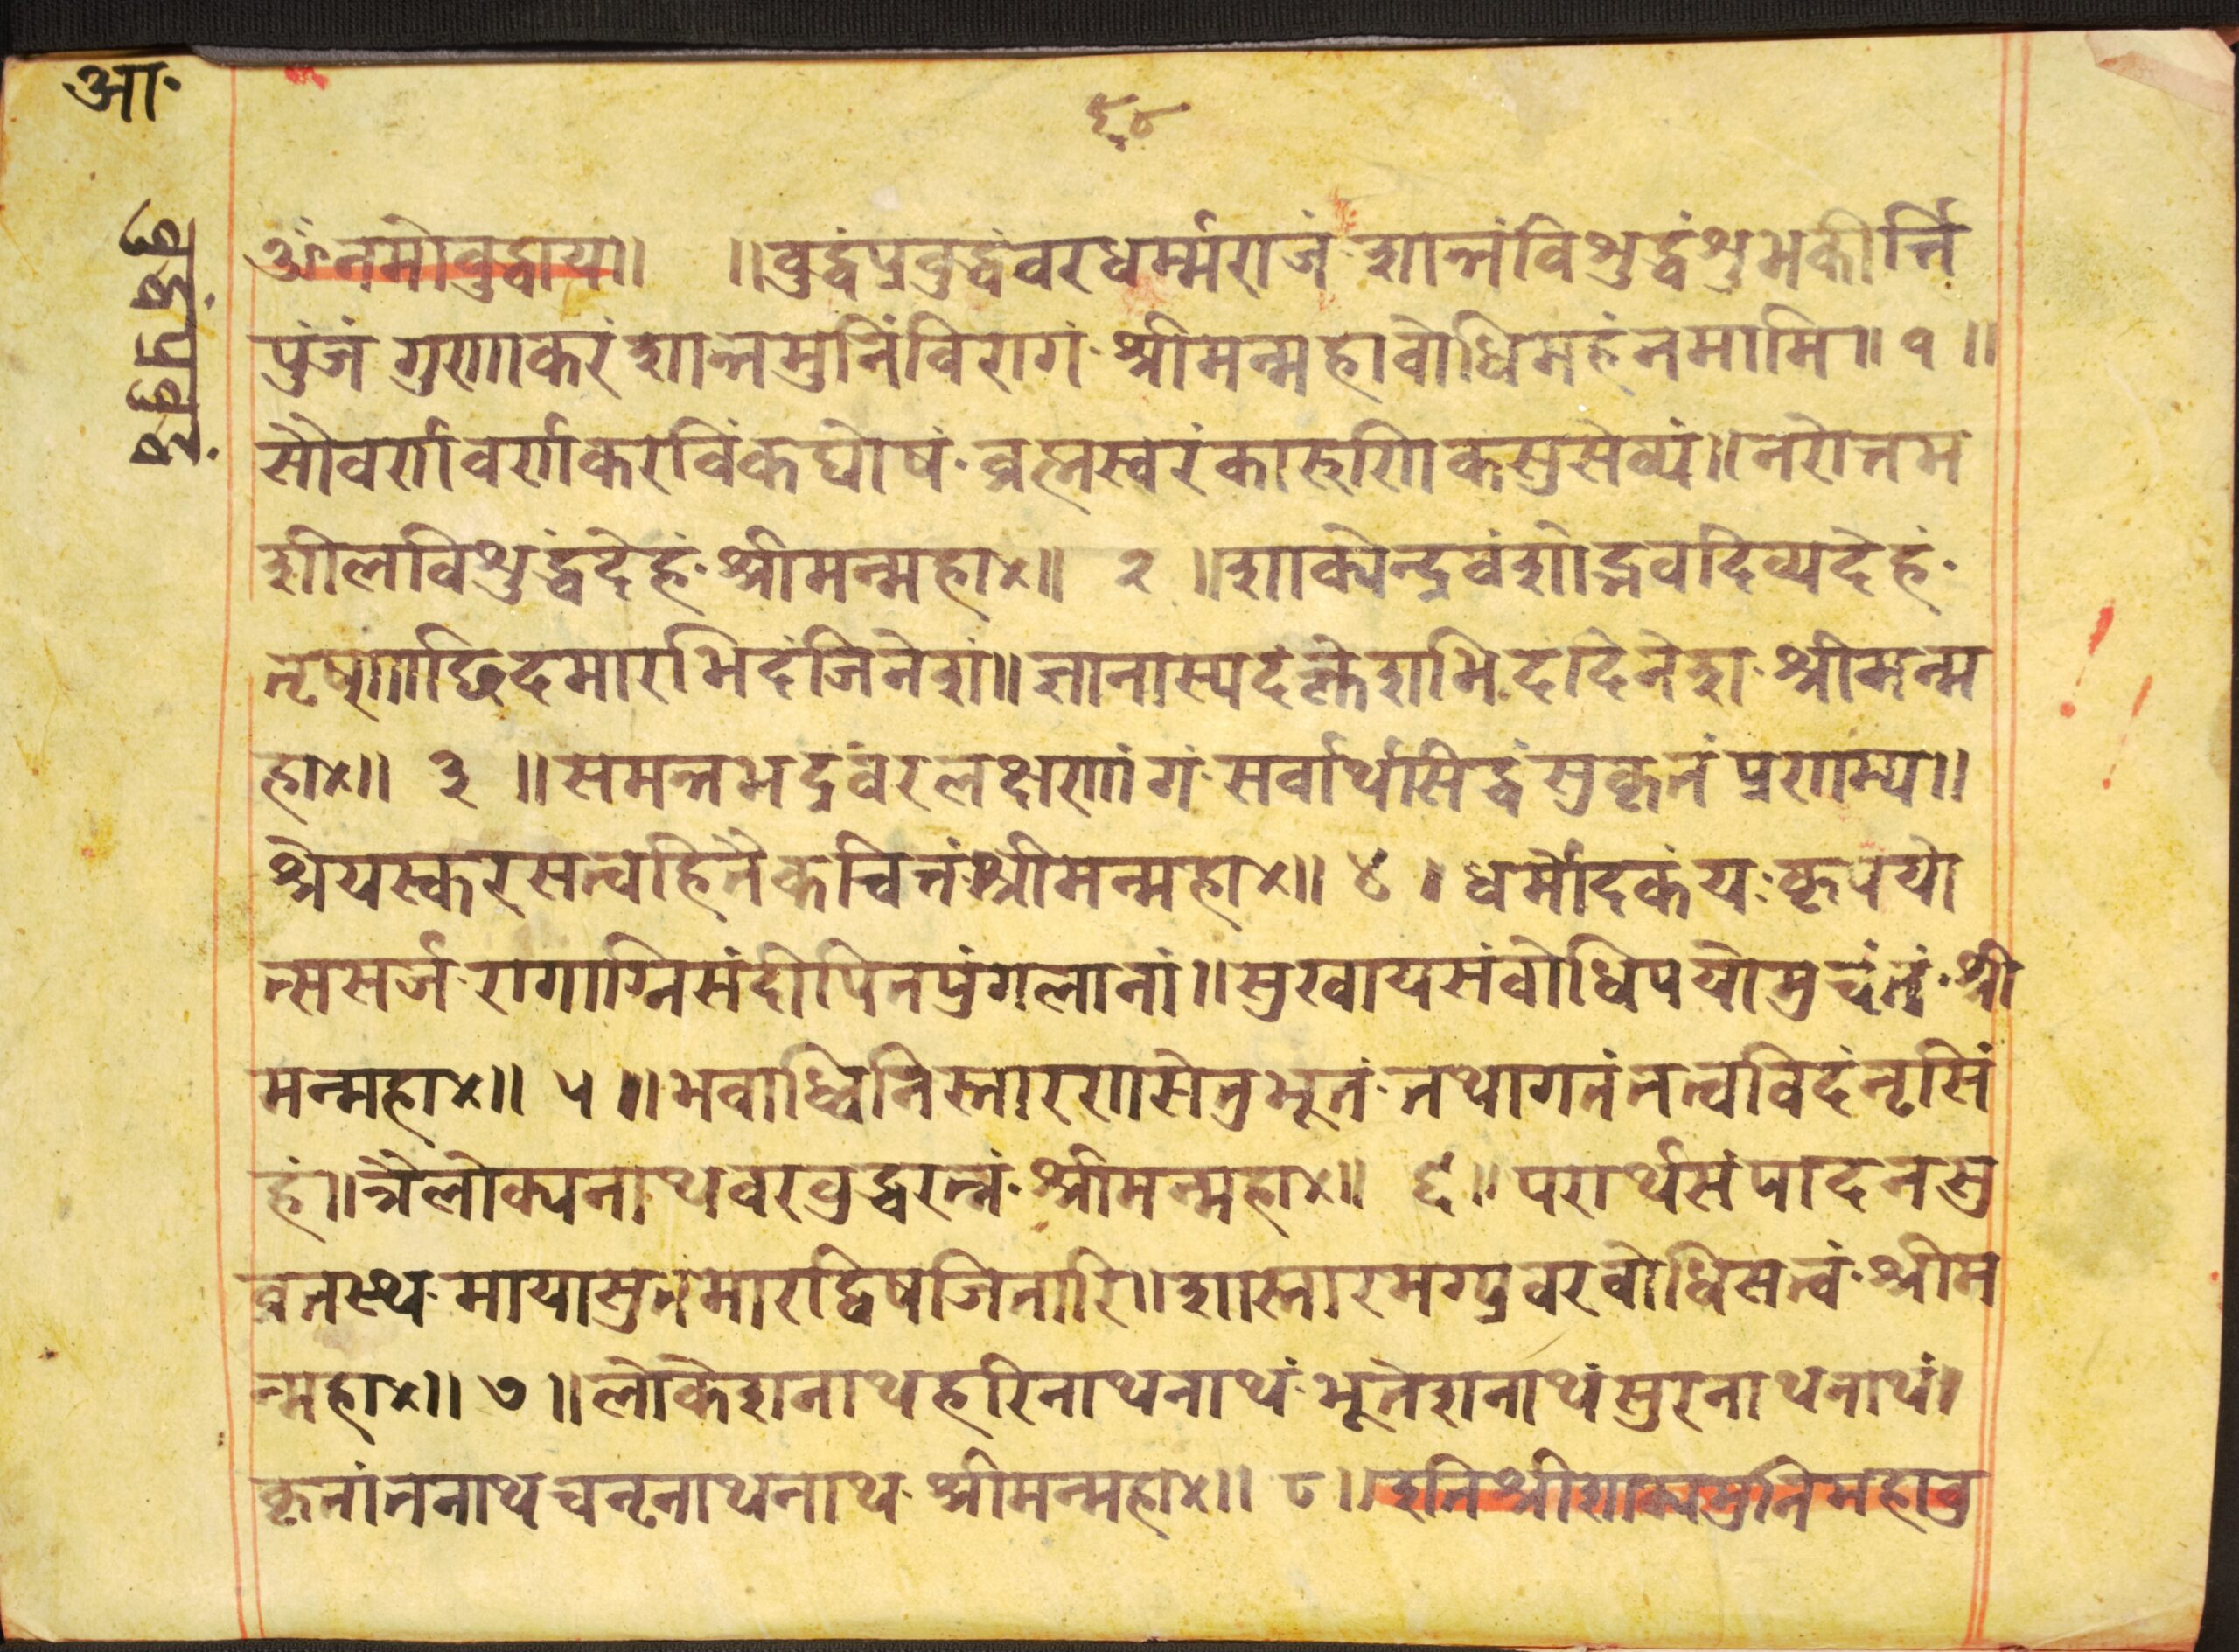 आ.
६४
बुद्धंप्रबुद्धं
ॐनमोवुद्धाय॥ ॥वुद्धंप्रवुद्धंवरधर्म्मराजं शान्तंविशुद्धंशुभकीर्त्ति
पुंजं गुणाकरं शान्तमुनिंविरागं श्रीमन्महावोधिमहंनमामि॥ १ ॥
सौवर्णवर्णकरविंकघोषं व्रह्मस्वरंकारुणिकसुसेव्यं॥नरोत्तम
शीलविशुद्धंदेहं श्रीमन्महा४॥ २ ॥शाक्येन्द्रवंशोद्भवदिव्यदेहं
तृष्णाछिदमारभिदंजिनेशं॥ज्ञानास्पदंक्लेशभिदंदिनेश श्रीमन्म
हा४॥ ३ ॥समन्तभद्रंवरलक्षणांगं सर्वार्थसिद्धंसुकृतं प्रणम्य॥
श्रेयस्करसत्वहितैकचित्तं श्रीमन्महा४॥ ४ । धर्मोदकंय कृपयो
त्ससर्ज रागाग्निसंदीपितपुंगलानां॥सुखायसंवोधिपयोमुचंतं श्री
मन्महा४॥ ५ ॥भवाब्धिनिस्तारणसेतुभूतं तथागतंतत्वविदंनृसिं
हं॥त्रैलोक्यनाथवरवुद्धरत्नं श्रीमन्महा४॥ ६॥परार्थसंपादनसु
व्रतस्थ मायासुतमारद्विषजितारि॥शास्तारमग्प्रवरवोधिसत्वं श्रीम
न्महा४॥ ७ ॥लोकेशनाथहरिनाथनाथं भूतेशनाथंसुरनाथनाथं।
कृतांतनाथचनृनाथनाथ श्रीमन्महा४॥ ८॥इतिश्रीशाक्यमुनिमहावु